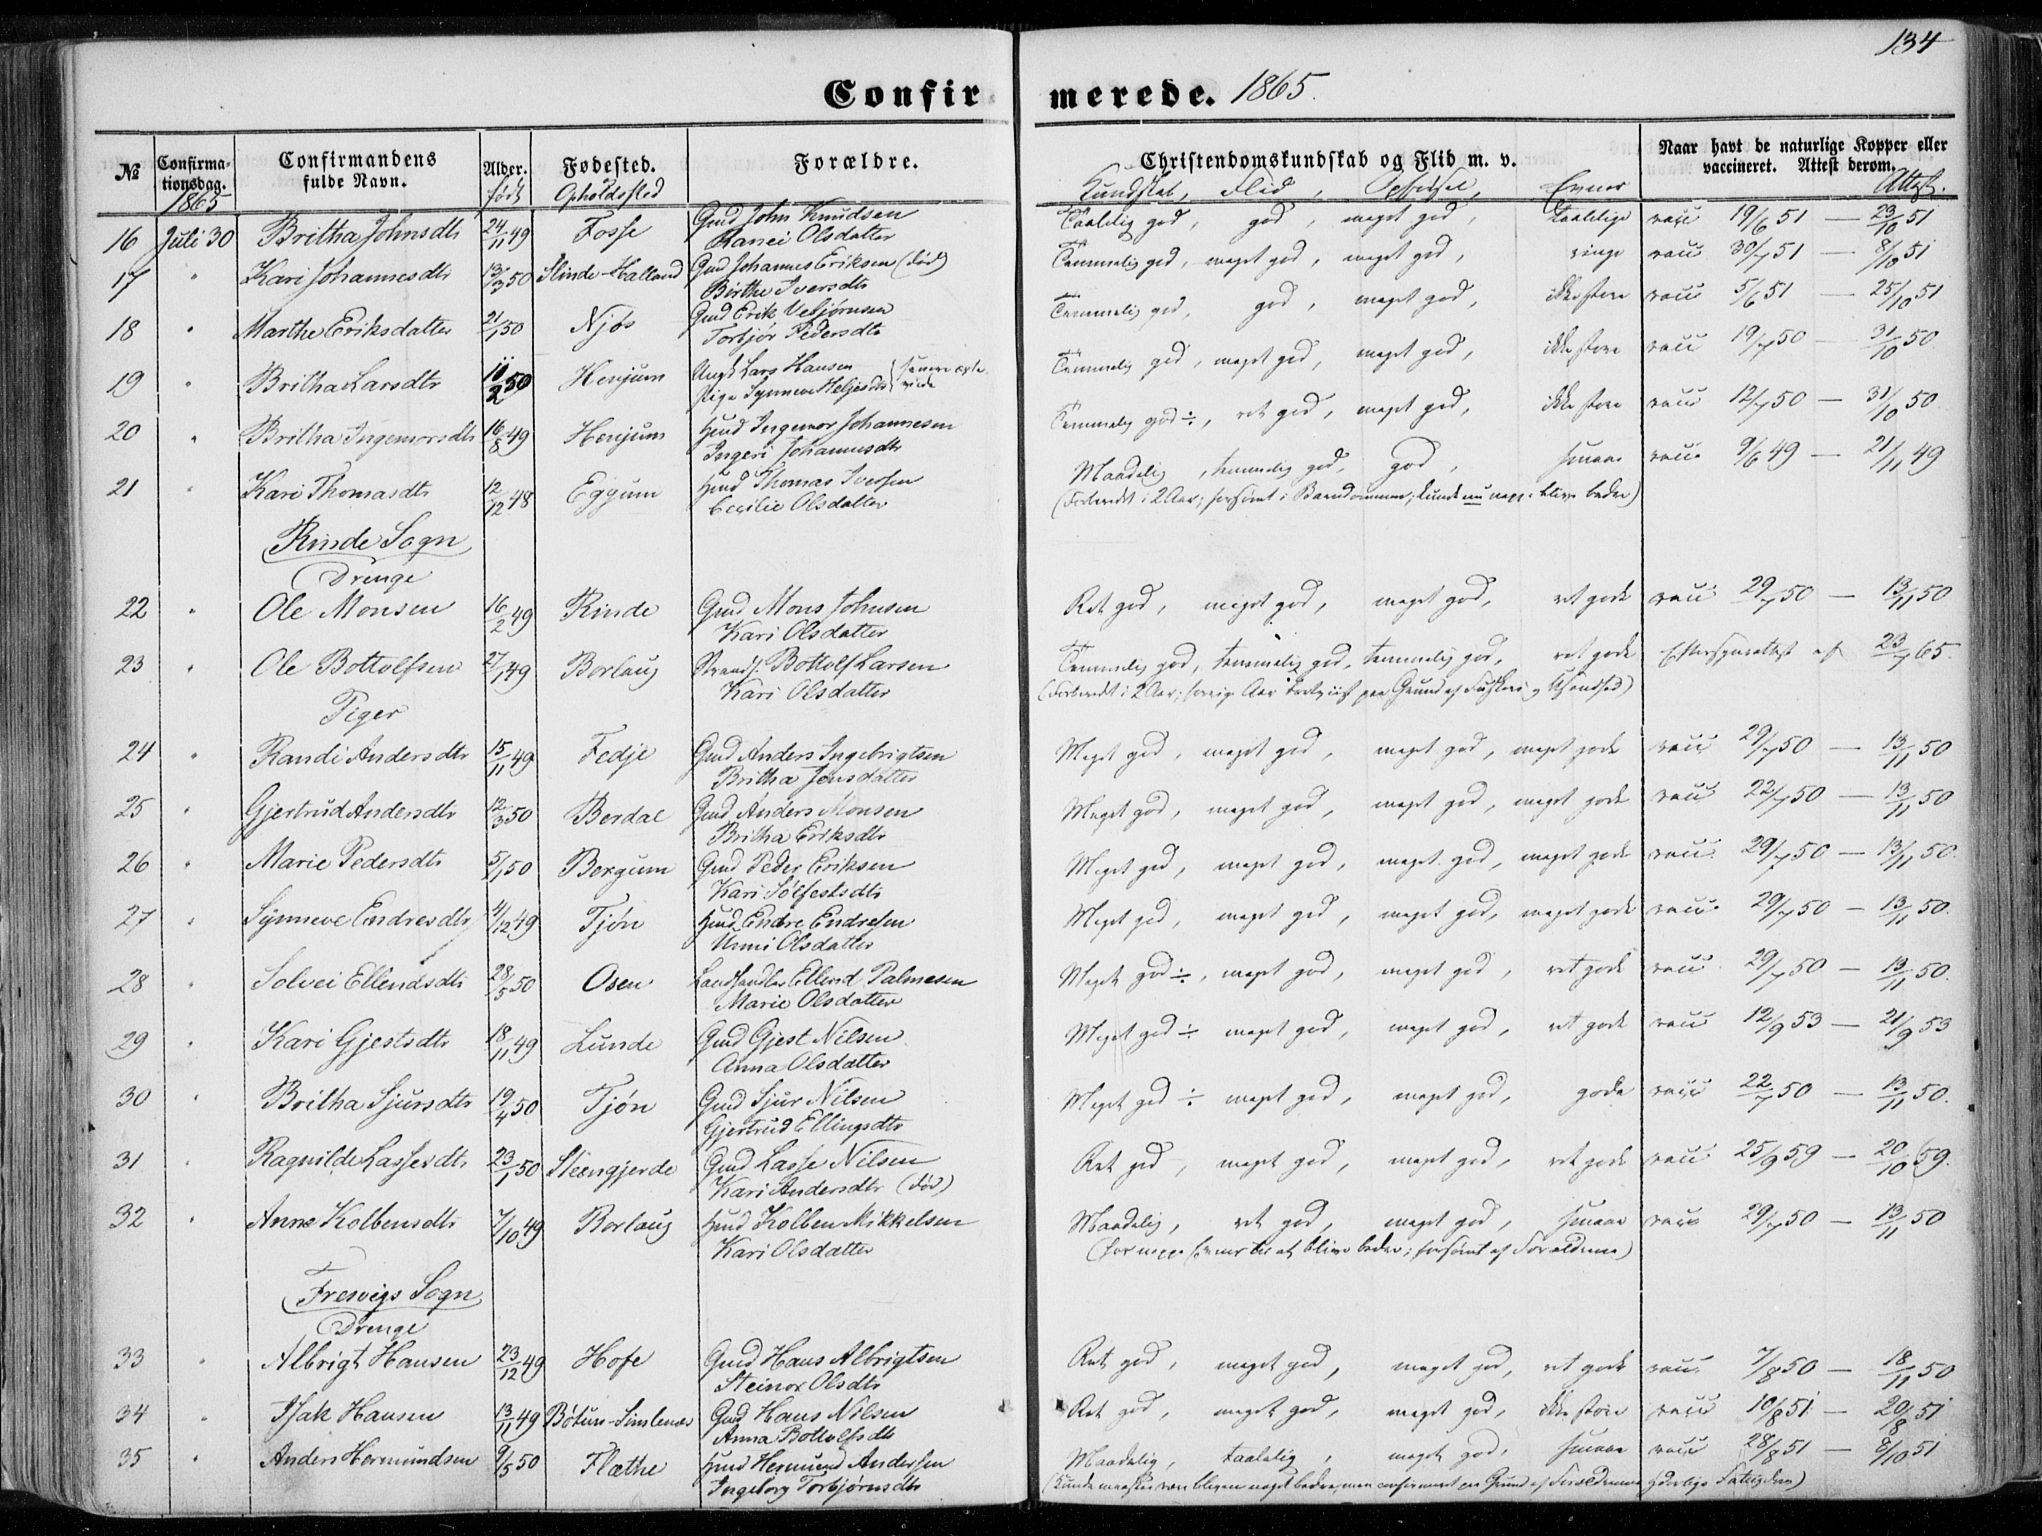 134
Confirmerede. 1865.
№ Confirmationsdag. Confirmandens fulde Navn. Alder. Fødested. Forældre. Christendomskundskab og Flid m. v. Naar havt de naturlige Kopper eller vaccineret. Attest derom.
1865 født Opholdssted Kundskab, Flid, Opførsel, Evner Attest.
16 Juli 30 Britha Johnsdtr 24/11 49 Fosse Gmd John Knudsen Taalelig god, god, meget god, taalelige vacc 19/6 51 — 23/10 51
Ranei Olsdatter
17 " Kari Johannesdtr 13/3 50 Slinde-Halland Gmd Johannes Eriksen (død) Temmelig god, meget god, meget god, ringe vacc 30/7 51 — 8/10 51
Birthe Iversdtr
18 " Marthe Eriksdatter 21/1 50 Njøs Gmd Erik Vebjørnsen Temmelig god, god, meget god, ikke store vacc 5/6 51 — 25/10 51
Torbjør Pedersdtr
19 " Britha Larsdtr 10/2 50 Henjum Ungk Lars Hansen Temmelig god, meget god, meget god, ikke store vacc 19/7 50 — 31/10 50
Pige Synneve Heljesdtr (senere ægteviede
20 " Britha Ingemorsdtr 16/8 49 Henjum Hmd Ingemor Johannesen Temmelig god ÷, ret god, meget god, ikke store vacc 12/7 50 — 31/10 50
Ingeri Johannesdtr
21 " Kari Thomasdtr 12/12 48 Eggum Hmd Thomas Iversen Maadelig, temmelig god, god, smaae vacc 9/6 49 — 21/11 49
Cecilie Olsdatter (Forberedt i 2 Aar; forsømt i Barndommen; kunde nu neppe blive bedre)
Rinde Sogn
Drenge
22 " Ole Monsen 16/2 49 Rinde Gmd Mons Johnsen Ret god, meget god, meget god, ret gode vacc 29/7 50 — 13/11 50
Kari Olsdatter
23 " Ole Bottolfsen 27/1 49 Borlaug Strands. Bottolf Larsen Temmelig god, temmelig god, temmelig god, ret gode af 23/7 65.
Kari Olsdatter (Forberedt i 2 Aar; forrige Aar paa Grund af)
Piger
24 " Randi Andersdtr 15/11 49 Fedje Gmd Anders Ingebrigtsen Meget god, meget god, meget god, meget gode vacc 29/7 50 — 13/11 50
Britha Jensdatter
25 " Gjertrud Andersdtr 12/3 50 Berdal Gmd Anders Monsen Meget god, meget god, meget god, meget gode vacc 22/7 50 — 13/11 50
Britha Eriksdtr
26 " Marie Pedersdtr 5/1 50 Bergum Gmd Peder Eriksen Meget god, meget god, meget god, meget gode vacc. 29/7 50 — 13/11 50.
Kari Sølfestsdtr
27 " Synneve Endresdtr 4/12 49 Tjøn Hmd Endre Endresen Meget god, meget god, meget god, meget gode vacc. 29/7 50 — 13/11 50.
Unni Olsdatter
28 " Solvei Ellendsdtr 28/5 50 Osen Landhandler Ellend Palmesen Meget god ÷, meget god, meget god, ret gode vacc. 29/7 50 — 13/11 50.
Marie Olsdatter
29 " Kari Gjestsdtr 18/11 49 Lunde Gmd Gjest Nilsen Meget god ÷ meget god, meget god, ret gode vacc 12/9 53 — 21/9 53
Anna Olsdatter
30 " Britha Sjursdtr 19/4 50 Tjøn Gmd Sjur Nilsen Meget god ÷ meget god, meget god, gode vacc 22/7 50 — 13/11 50.
Gjertrud Ellingsdtr
31 " Ragnilde Lassesdtr 23/1 50 Steengjerde Gmd Lasse Nilsen Ret god, meget god, meget god, ret gode vacc 25/9 59 — 20/10 59.
Kari Andersdtr (død)
32 " Anna Kolbensdtr 7/10 49 Borlaug Hmd Kolben Mikkelsen Maadelig, ret god, meget god, smaae vacc 29/7 50 — 13/11 50
Kari Olsdatter (har neppe Evner til at blive bedre; forsømt af Forældrene)
Fresvigs Sogn
Drenge
33 " Albrigt Hansen 23/12 49 Hofe Gmd Hans Albrigtsen Ret god, meget god, meget god, ret gode vacc. 7/8 50 — 18/11 50
Steinor Olsdtr
34 " Isak Hansen 13/11 49 Bøtun-Simlenæs Gmd Hans Nilsen Ret god, meget god, meget god, ikke store vacc 10/8 51 — 20/8 51
Anna Bottolfsdtr
35 " Anders Hermundsen 9/5 50 Flæthe Hmd Hermund Andersen Maadelig, taalelig, meget god, smaae vacc 28/8 51 — 8/10 51
Ingeborg Torbjørnsdtr (Kunde maaskee være bleven noget bedre, men confirmeret paa Grund af Forældrenes yderlige Fattigdom)